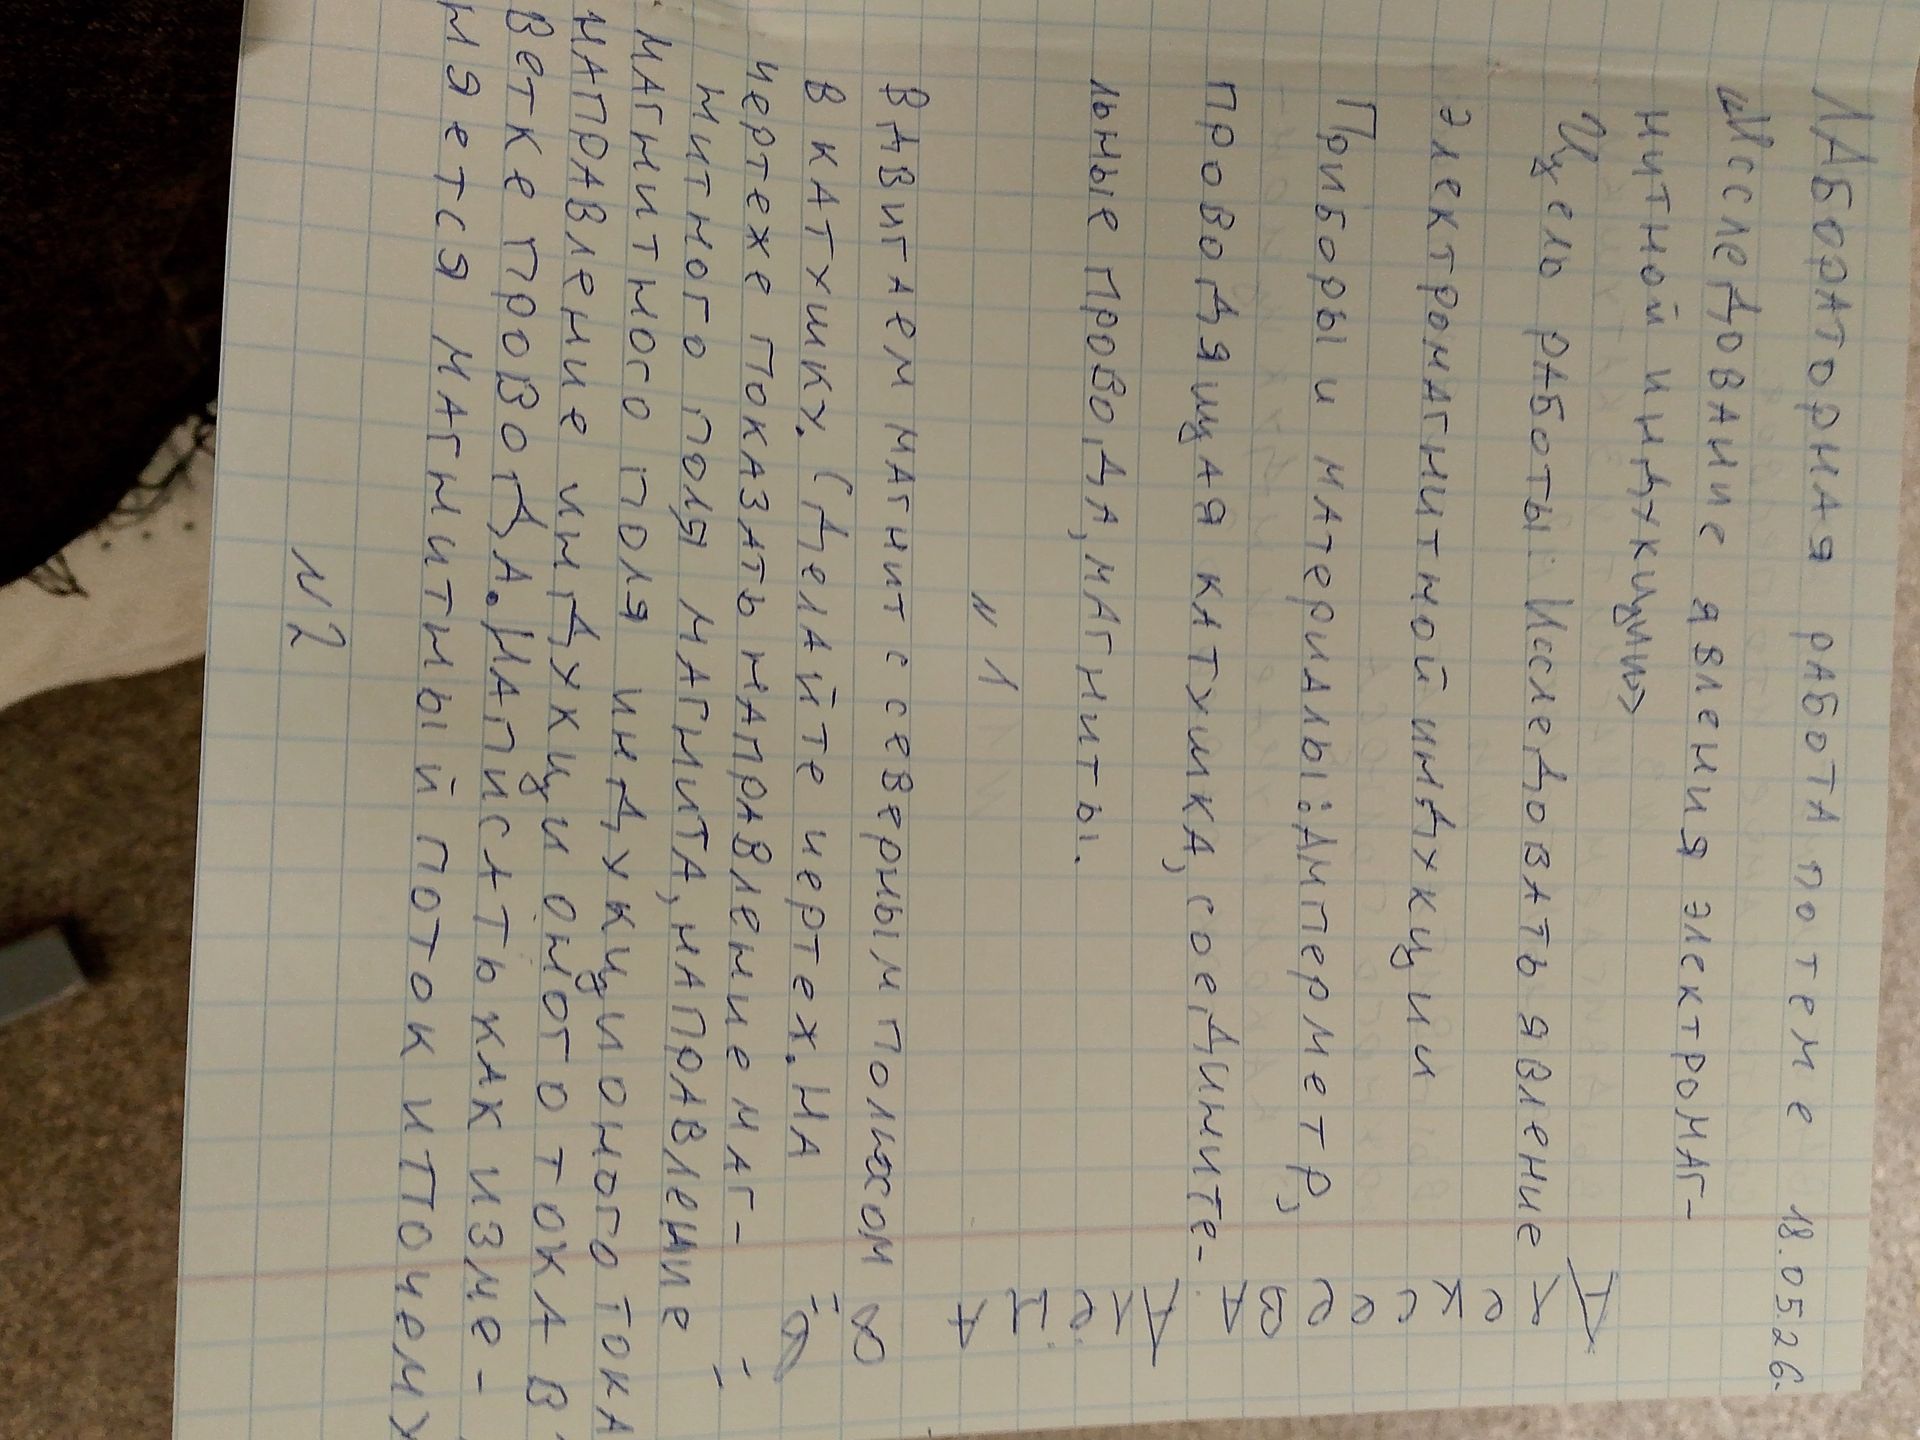 18.05.26.
Лабораторная работа по теме
«Исследование явления электромаг-
нитной индукции»
Цель работы: Исследовать явление
электромагнитной индукции
Приборы и материалы: Амперметр,
проводящая катушка, соедините-
льные провода, магниты.
Алексеева Алейна
8 "б"
N 1
Вдвигаем магнит с северным полюсом
в катушку. (Делайте чертеж. На
чертеже показать направление маг-
нитного поля магнита, направление
магнитного поля индукционого тока
направление индукционого тока в
ветке провода. Написать как изме-
няется магнитный поток и почему
N 2